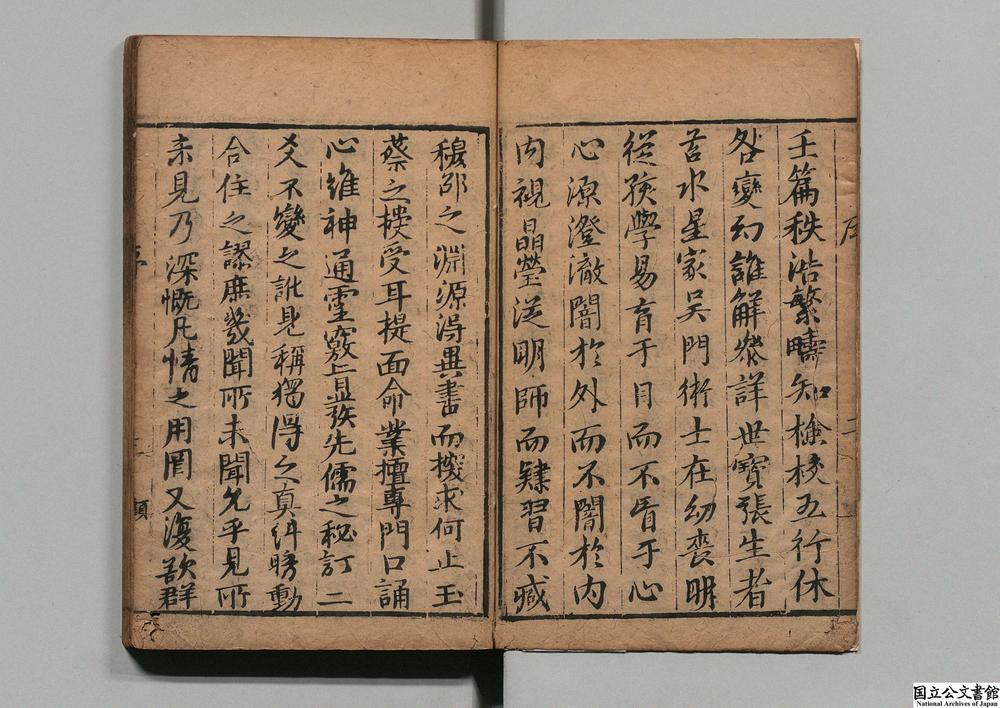 壬篇秩浩繁疇知檢校五行休
咎變幻誰解叅詳世寶張生者
苕水星家吳門術士在幼喪明
從疾學易盲于目而不盲于心
心源澄澈闇於外而不闇於内
内視晶瑩從明師而肄習不臧
穆邵之淵源淂異書而授求何止玉
蔡之授受耳提面命業擅專門口誦
心維神通靈竅上显先儒之秘訂二
爻不變之訛見稱獨淂之真糾明動
合住之謬庶幾聞所未聞允乎見所
未見乃深慨凡情之用罔又復欲群
序
国立公文書館
National Archives of Japan